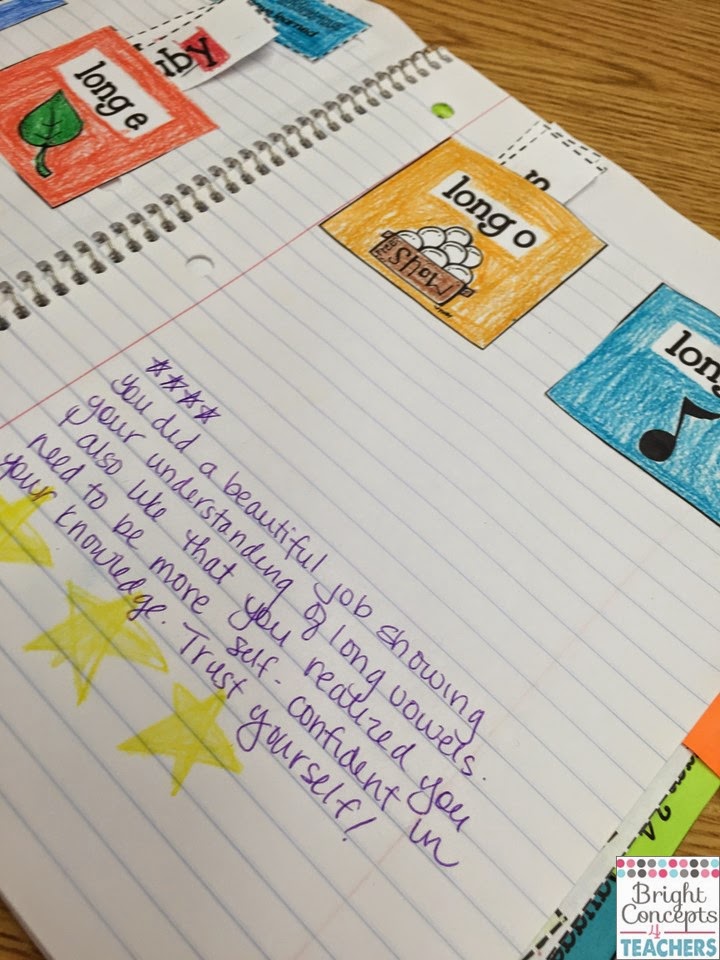 long e
uby
long o
Snow
lon
****
You did a beautiful job showing
your understanding of long vowels.
I also like that you realized you
need to be more self-confident in
your knowledge. Trust yourself!
Bright
Concepts
4
TEACHERS